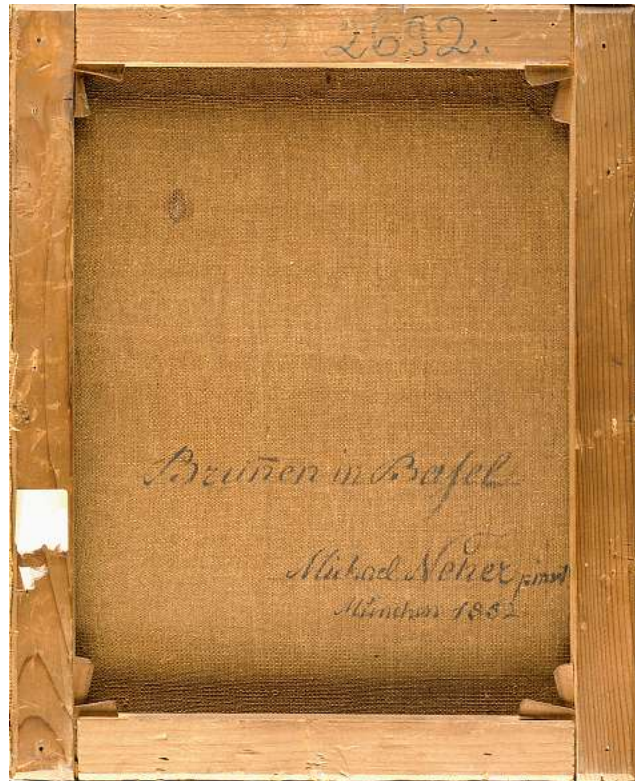 2692.
Brun̄en in Baſel
Michael Neher pinxit
München 1852